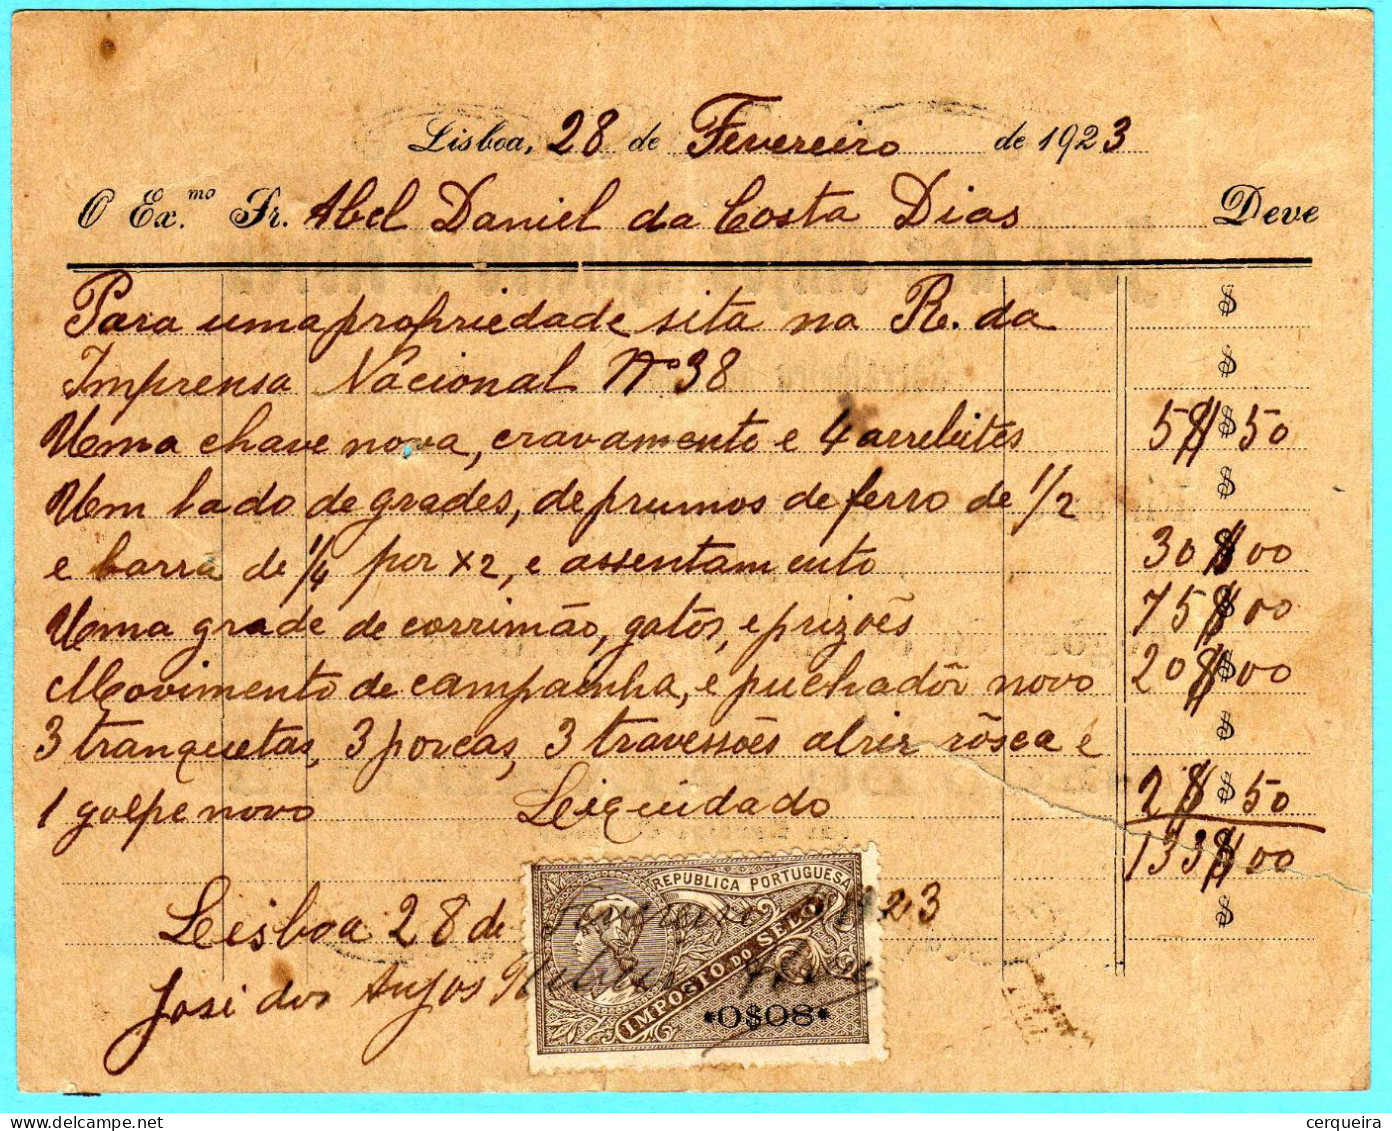 Lisboa, 28 de Fevereiro de 1923
O Ex.mo Sr. Abel Daniel da Costa Dias Deve
Para uma propriedade sita na R. da $
Imprensa Nacional Nº 38 $
Uma chave nova, cravamento e 4 arrebites 5$50
Um lado de grades, de prumos de ferro de 1/2 $
e barra de 1/4 por x2, e assentamento 30$00
Uma grade de corrimão, gatos, e prizoēs 75$00
Movimento de campainha, e puchadōr novo 20$00
3 tranquetas, 3 porcas, 3 travessōes abrir rōsca e $
1 golpe novo Liquidado 2$50
133$00
$
Lisboa 28 de Fevereiro de 1923
José dos Anjos
REPUBLICA PORTUGUESA
IMPOSTO DO SELO
*0$08*
cerqueira